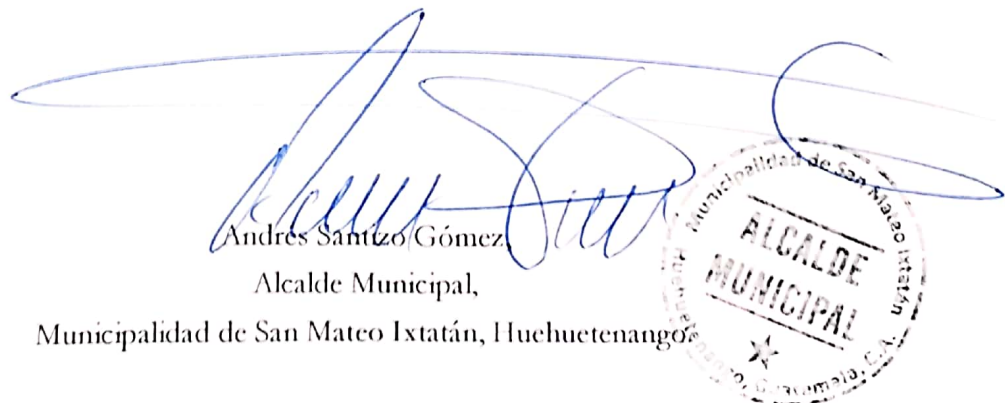 Andrés Santizo Gómez,
Alcalde Municipal,
Municipalidad de San Mateo Ixtatán, Huehuetenango.
Municipalidad de San Mateo Ixtatán
ALCALDE
MUNICIPAL
Huehuetenango, Guatemala, C.A.